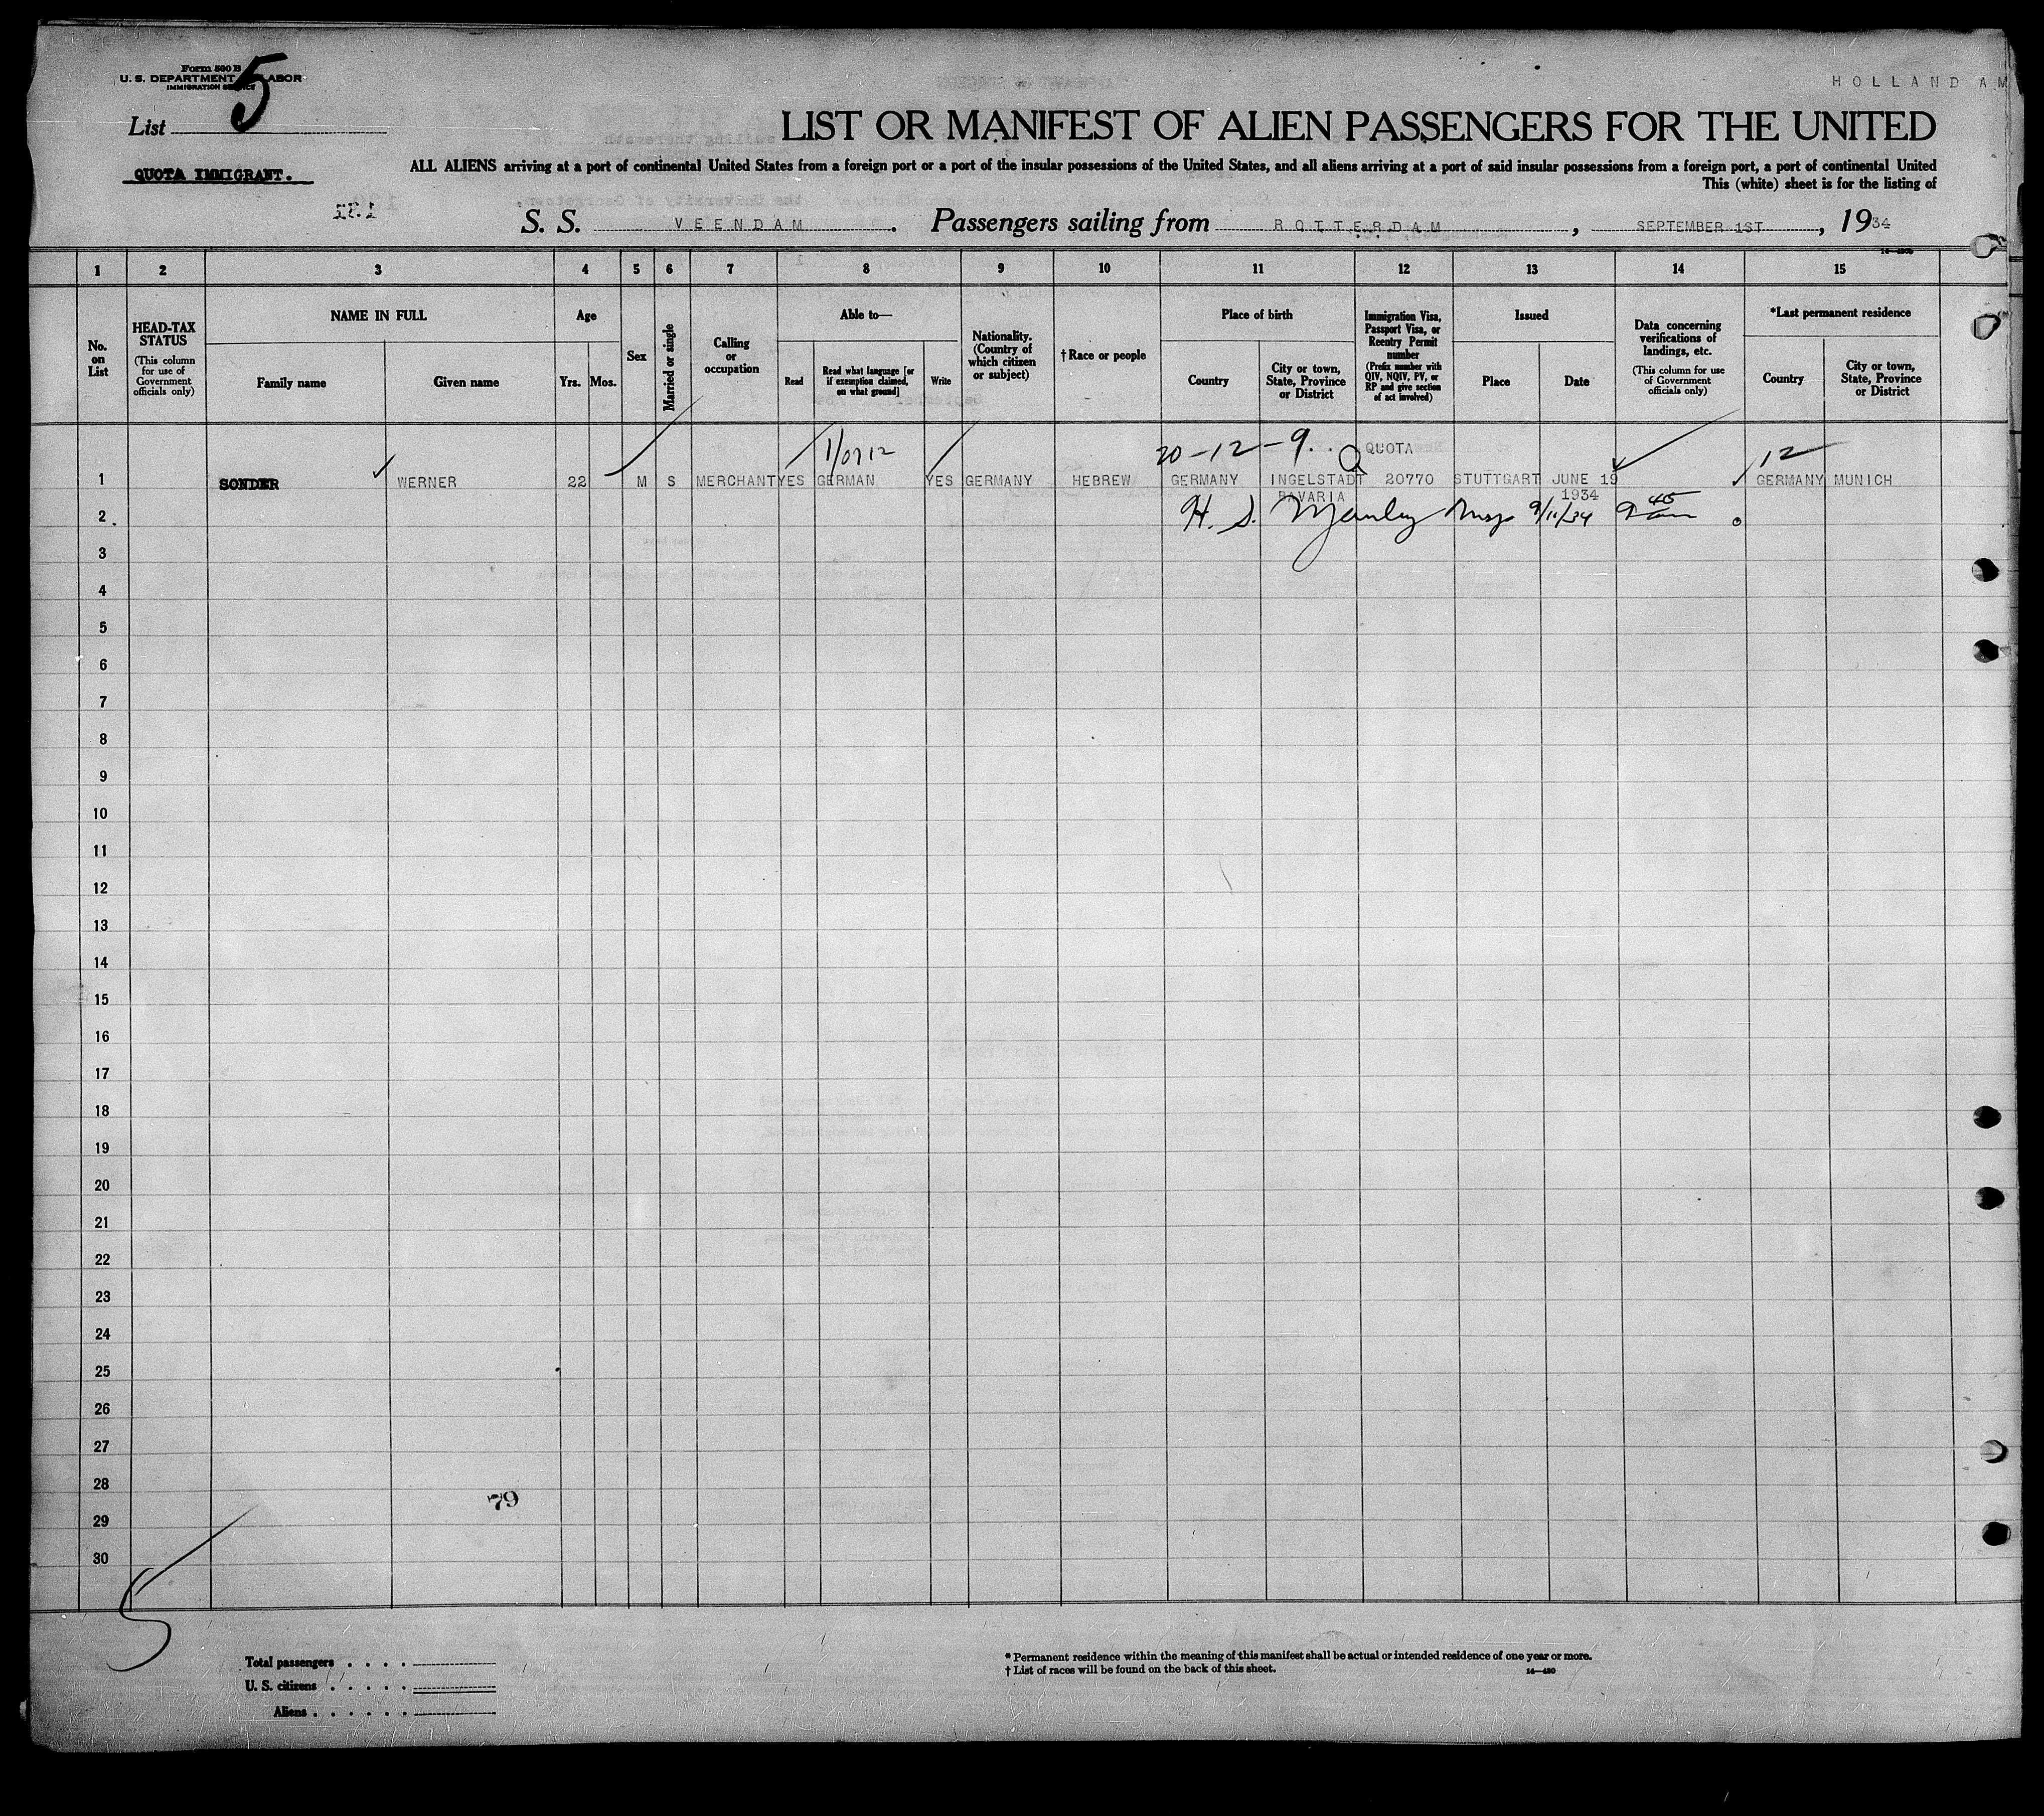 Form 500 B
U. S. DEPARTMENT LABOR
IMMIGRATION SERVICE
List 5
HOLLAND AM
LIST OR MANIFEST OF ALIEN PASSENGERS FOR THE UNITED
ALL ALIENS arriving at a port of continental United States from a foreign port or a port of the insular possessions of the United States, and all aliens arriving at a port of said insular possessions from a foreign port, a port of continental United
This (white) sheet is for the listing of
QUOTA IMMIGRANT.
S. S. VEENDAM. Passengers sailing from ROTTERDAM, SEPTEMBER 1ST, 1934
1 2 3 4 5 6 7 8 9 10 11 12 13 14 15
No. on List
HEAD-TAX STATUS
(This column for use of Government officials only)
NAME IN FULL
Family name
Given name
Age
Yrs. Mos.
Sex
Married or single
Calling or occupation
Able to—
Read
Read what language [or if exemption claimed, on what ground]
Write
Nationality. (Country of which citizen or subject)
†Race or people
Place of birth
Country
City or town, State, Province or District
Immigration Visa, Passport Visa, or Reentry Permit number
(Prefix number with QIV, NQIV, PV, or RP and give section of act involved)
Issued
Place
Date
Data concerning verifications of landings, etc.
(This column for use of Government officials only)
*Last permanent residence
Country
City or town, State, Province or District
20-12-9. QUOTA 12
1 SONDER WERNER 22 M S MERCHANT YES GERMAN YES GERMANY HEBREW GERMANY INGELSTADT 20770 STUTTGART JUNE 19 GERMANY MUNICH
BAVARIA 1934
2 H. S. Manley 9/11/34 9 45 am
3
4
5
6
7
8
9
10
11
12
13
14
15
16
17
18
19
20
21
22
23
24
25
26
27
28
79
29
30
5
Total passengers . . . .
U. S. citizens . . . . .
Aliens . . . . . .
* Permanent residence within the meaning of this manifest shall be actual or intended residence of one year or more.
† List of races will be found on the back of this sheet.
14—430